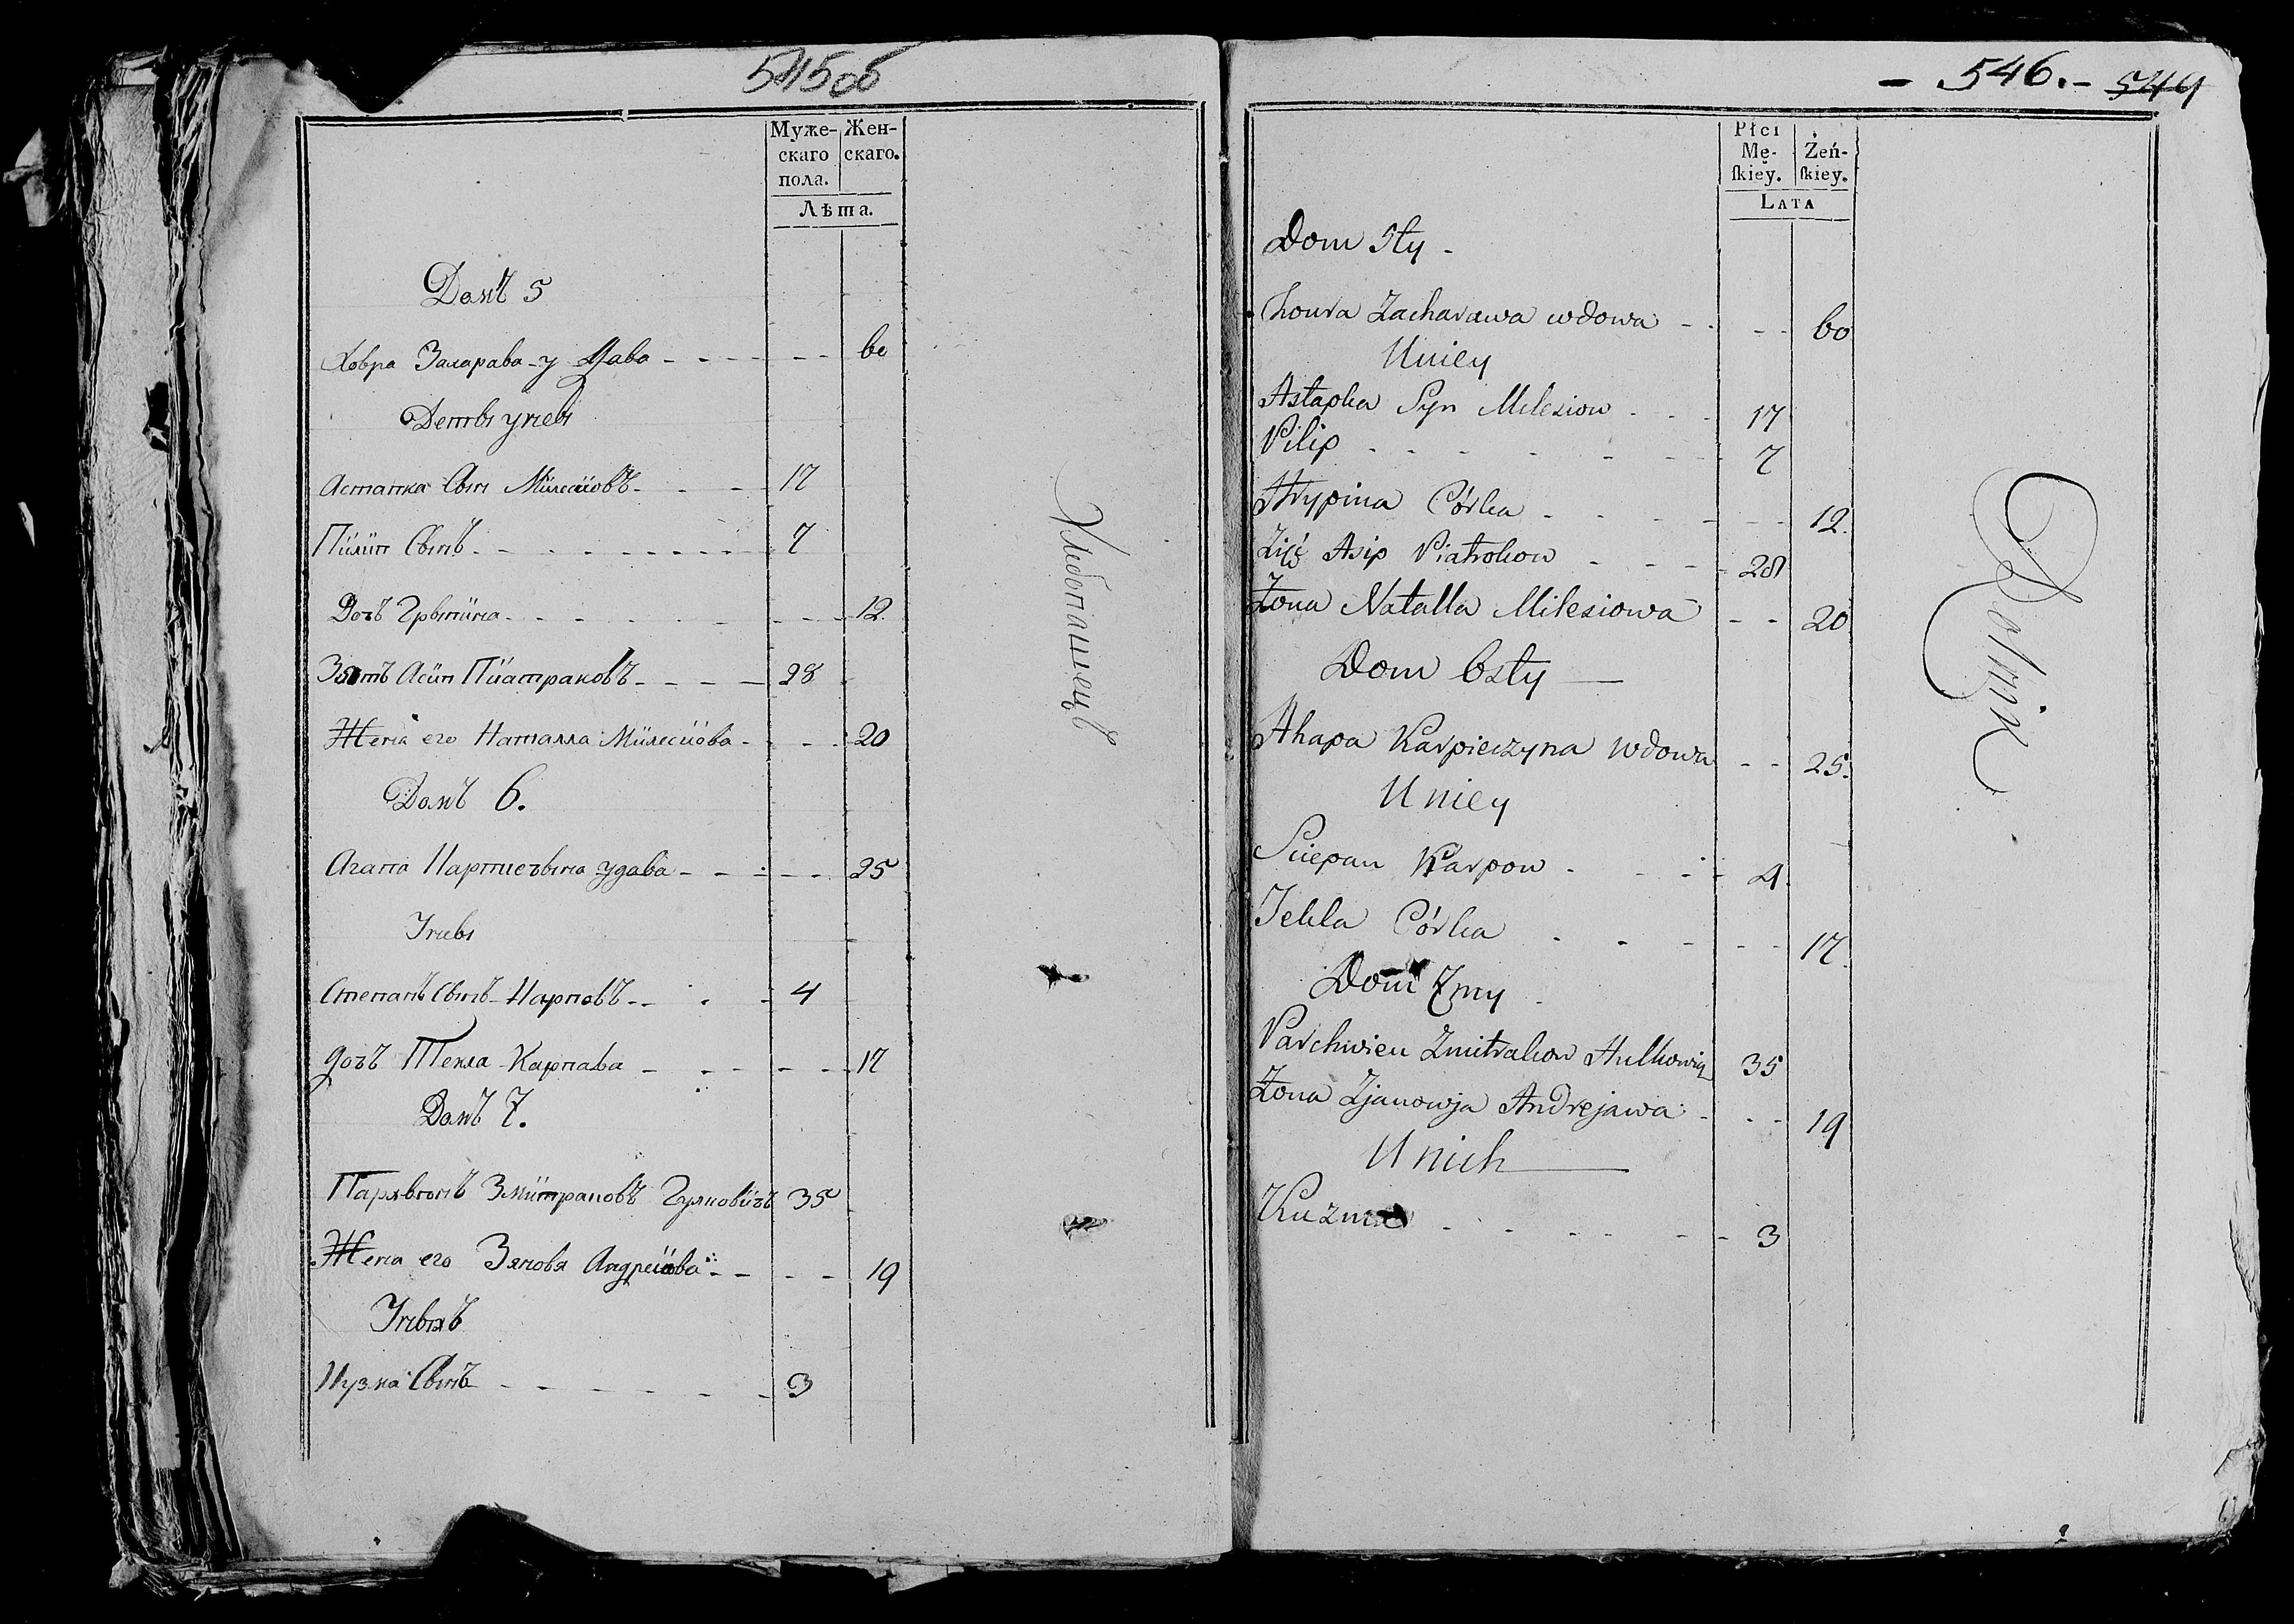 545об
Муже- Жен-
скаго скаго.
пола.
Лѣта.
Домъ 5
Ховра Захарава у Дава 60
Детвı унеı
Астапка Сын Милесıовъ 17
Пилип Сынъ 7
Дочъ Грыпина 12
Зятъ Асип Пıатраковъ 28
Жена его Наталла Милесıова 20
Домъ 6.
Агапа Карписчына удава 25
Унеı
Степанъ Сынъ Карповъ 4
дочъ Текла Карпава 17
Домъ 7.
Пархвıенъ Змитраковъ Гулковичъ 35
Жена его Зяновя Андреıава 19
Унıхъ
Кузма Сынъ 3
Хлѣбопашецъ
- 546. - 544
Płci
Mę- Żeń-
ſkiey. ſkiey.
LATA
Dom 5ty
Chowra Zacharawa wdowa 60
Uniey
Astapka Syn Milesiow 17
Pilip 7
Hrypina Córka 12
Zięć Asip Piatrokow 28
Żona Natalla Milesiowa 20
Dom 6sty
Ahapa Karpieczyna wdowa 25
Uniey
Sciepan Karpow 4
Tekla Córka 17
Dom 7my
Parchwien Zmitrakow Hulkowicz 35
Żona Zjanowja Andrejawa 19
Unich
Kuzma 3
Rolnik